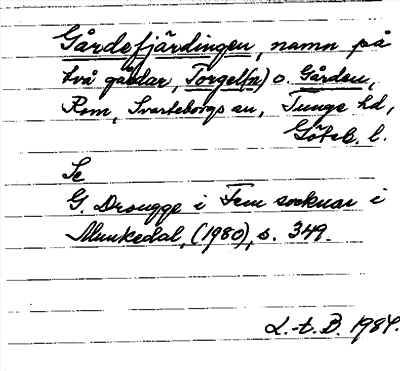 Gårdefjärdingen, namn på
två gårdar, Torgel(n) o. Gården,
Rom, Svarteborgs sn, Tunge hd,
Göteb. l.
Se
G. Drougge i Fem socknar i
Munkedal, (1980), s. 349.
L.-t. B. 1984.